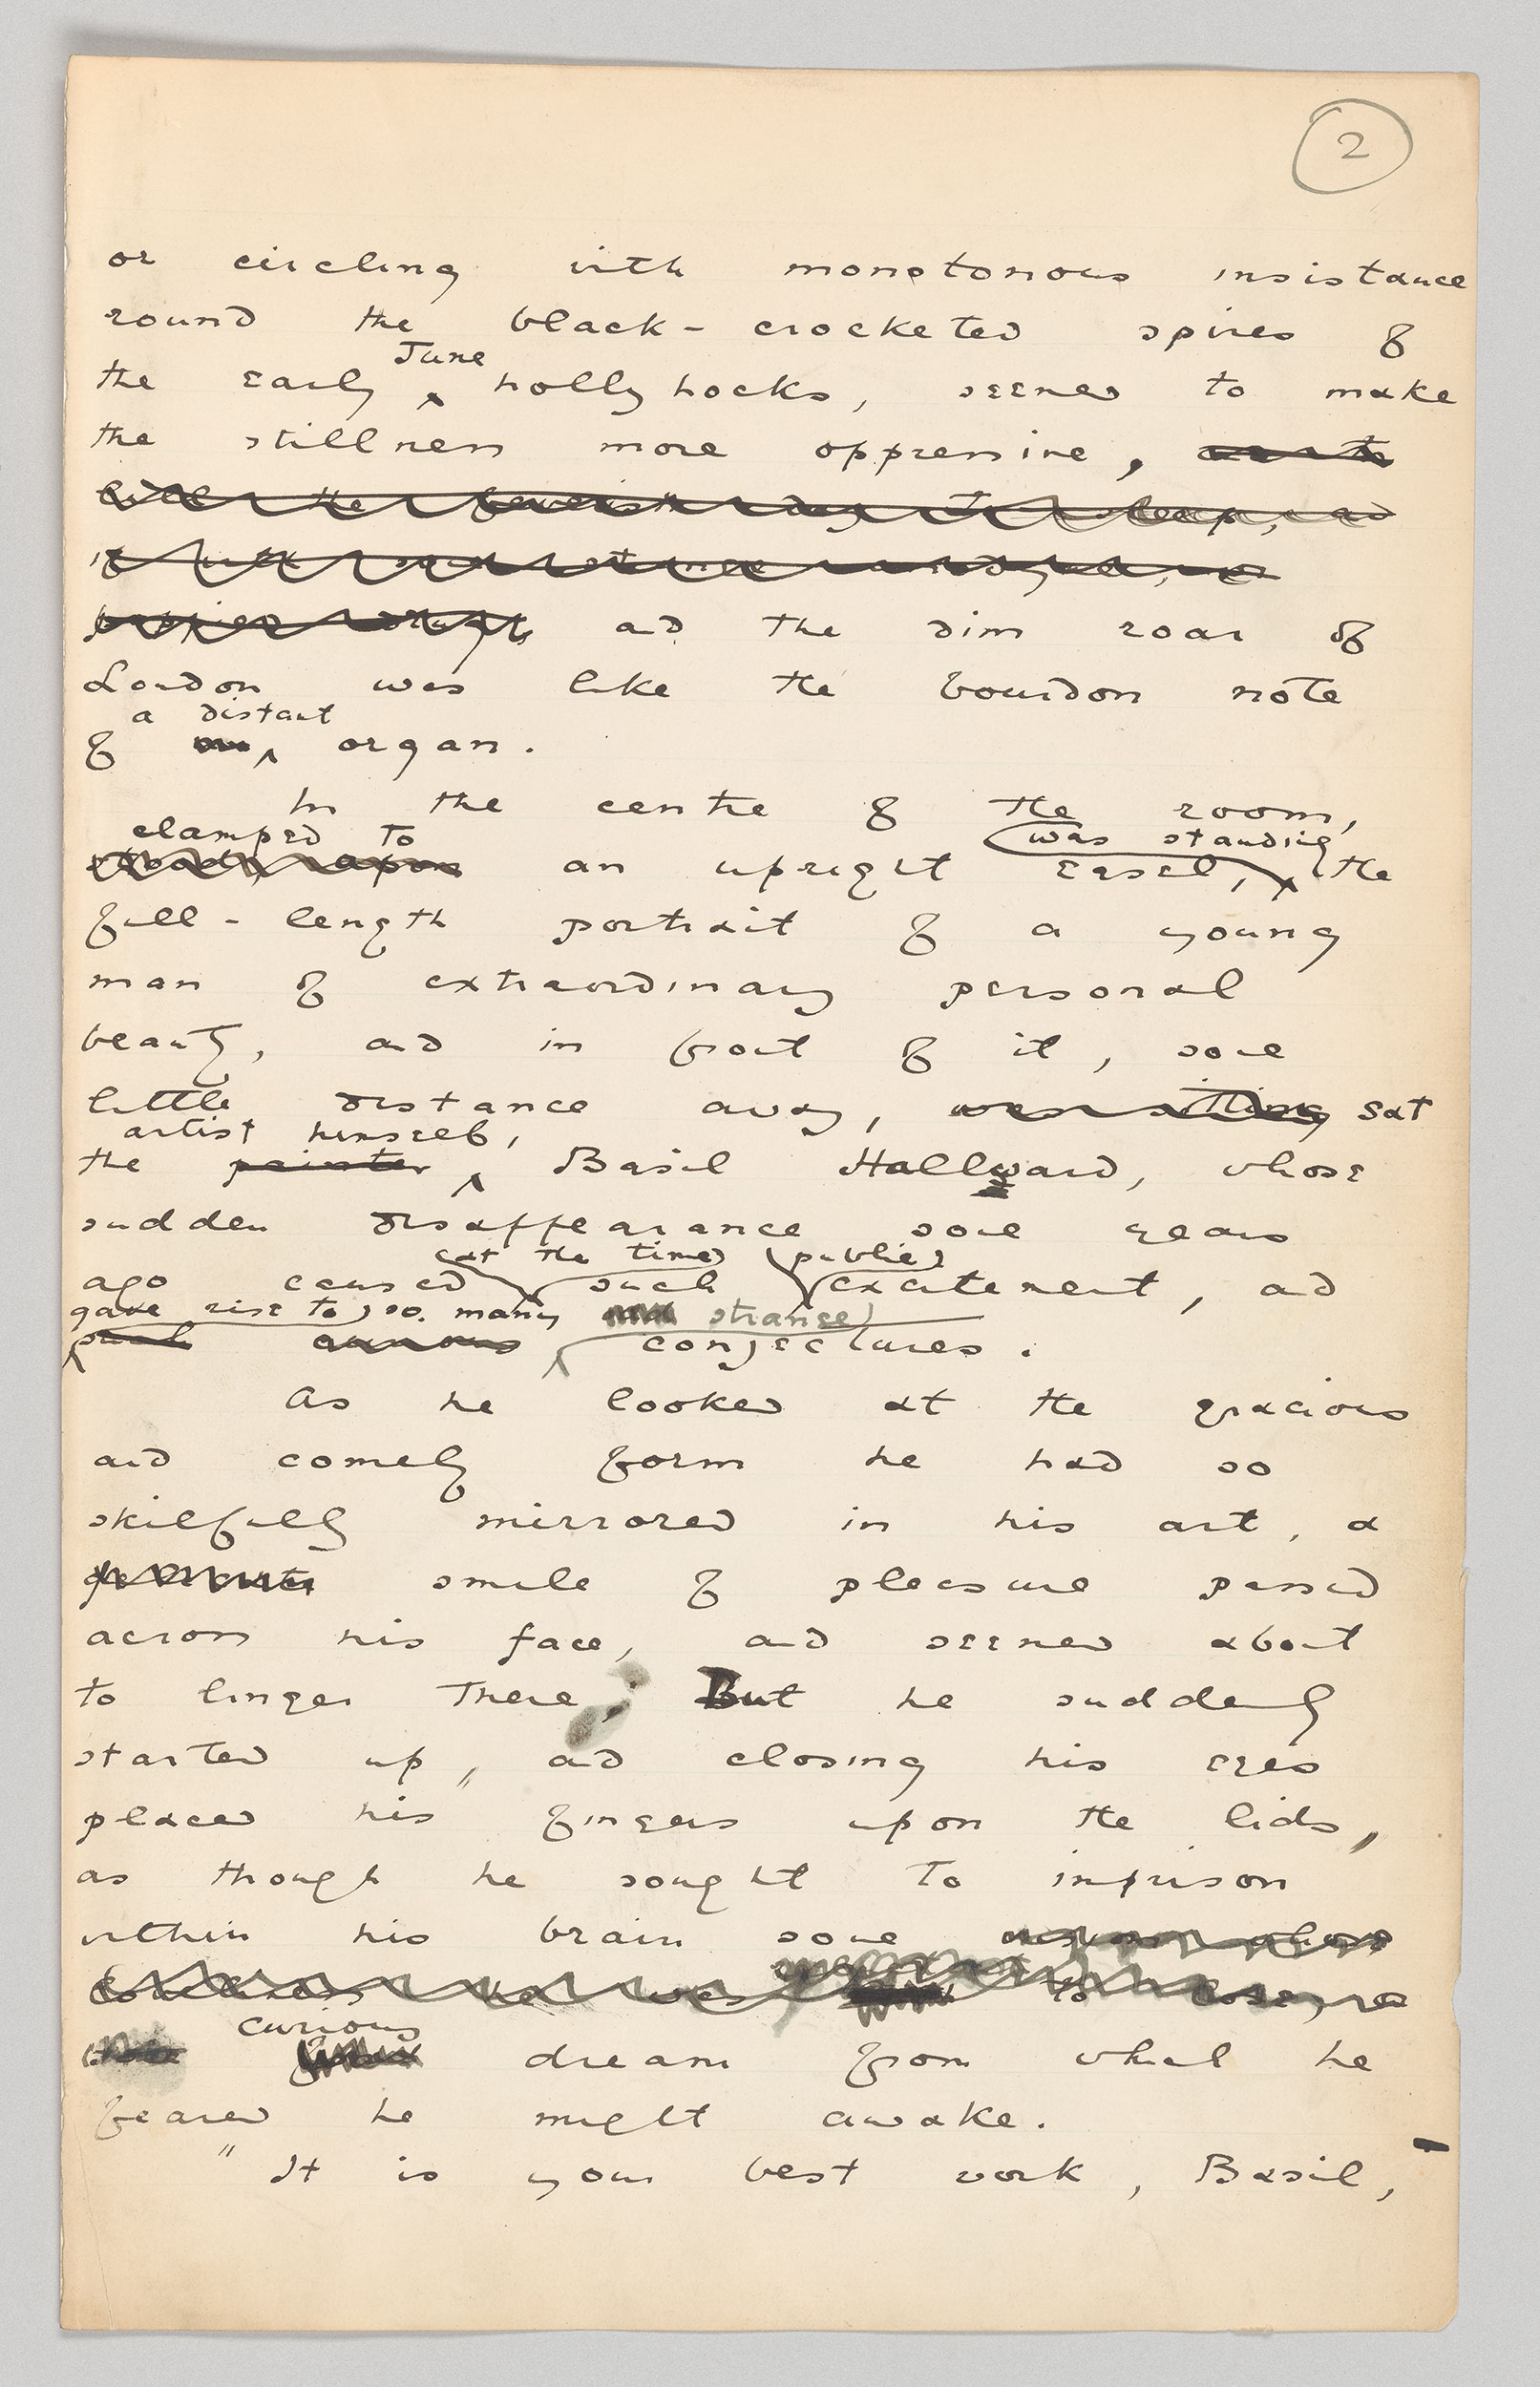 2
or circling with monotonous insistance
round the black-crocketed spires of
June
the early hollyhocks, seemed to make
the stillness more oppressive,
and the dim roar of
London was like the bourdon note
a distant
of organ.
In the centre of the room,
clamped to
was standing
an upright easel, the
full-length portrait of a young
man of extraordinary personal
beauty, and in front of it, some
little distance away, was sitting sat
artist himself,
the painter Basil Hallward, whose
sudden disappearance some years
at the time public
ago caused such excitement, and
gave rise to so many strange
curious conjectures.
As he looked at the gracious
and comely form he had so
skilfully mirrored in his art, a
smile of pleasure passed
across his face, and seemed about
to linger there, But he suddenly
started up, and closing his eyes
placed his fingers upon the lids,
as though he sought to imprison
within his brain some
he was to lose,
curious
dream from which he
feared he might awake.
"It is your best work, Basil,